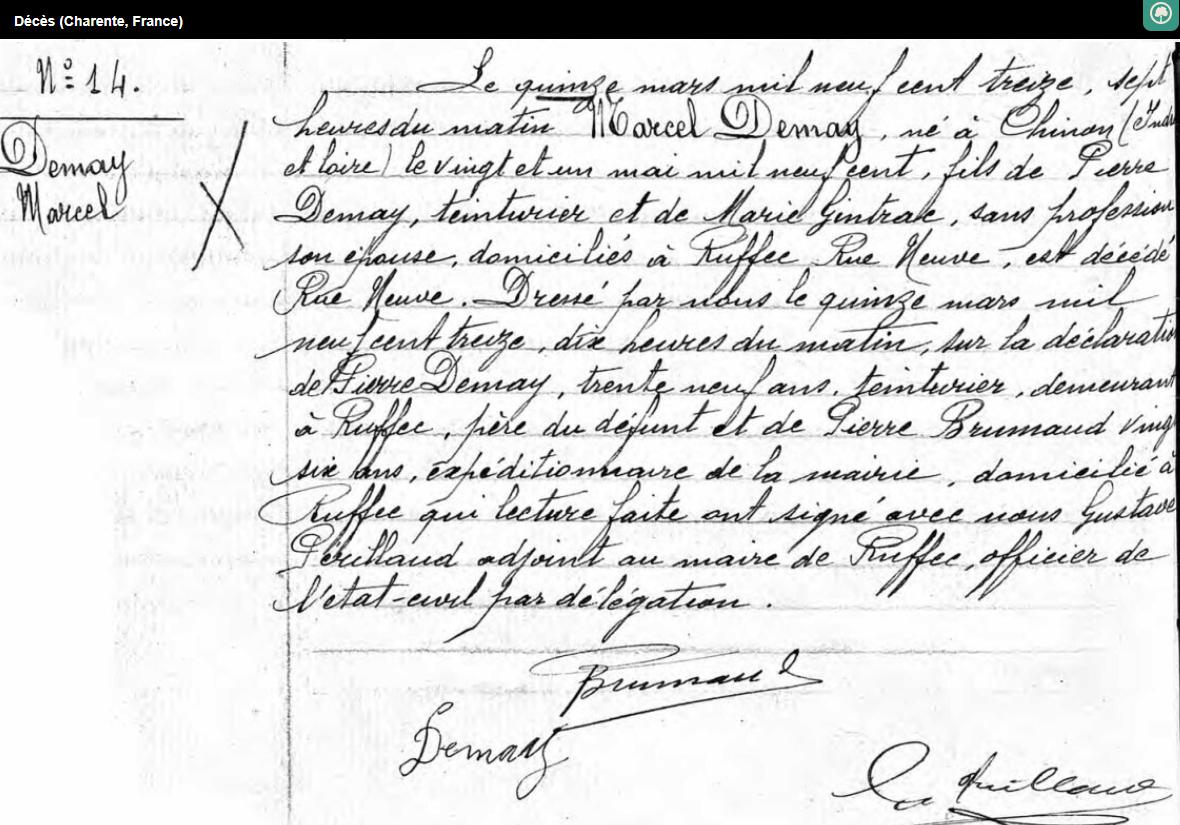 Décès (Charente, France)
N° 14.
Demay
Marcel
Le quinze mars mil neuf cent treize, sept
heures du matin Marcel Demay, né à Chinon (Indre
et loire) le vingt et un mai mil neuf cent, fils de Pierre
Demay, teinturier et de Marie Gintrac, sans profession
son épouse, domiciliés à Ruffec Rue Neuve, est décédé
Rue Neuve. Dressé par nous le quinze mars mil
neuf cent treize, dix heures du matin, sur la déclaration
de Pierre Demay, trente neuf ans, teinturier, demeurant
à Ruffec, père du défunt et de Pierre Brumaud vingt
six ans, expéditionnaire de la mairie, domicilié à
Ruffec qui lecture faite ont signé avec nous Gustave
adjoint au maire de Ruffec, officier de
l'état-civil par délégation.
Brumaud
Demay